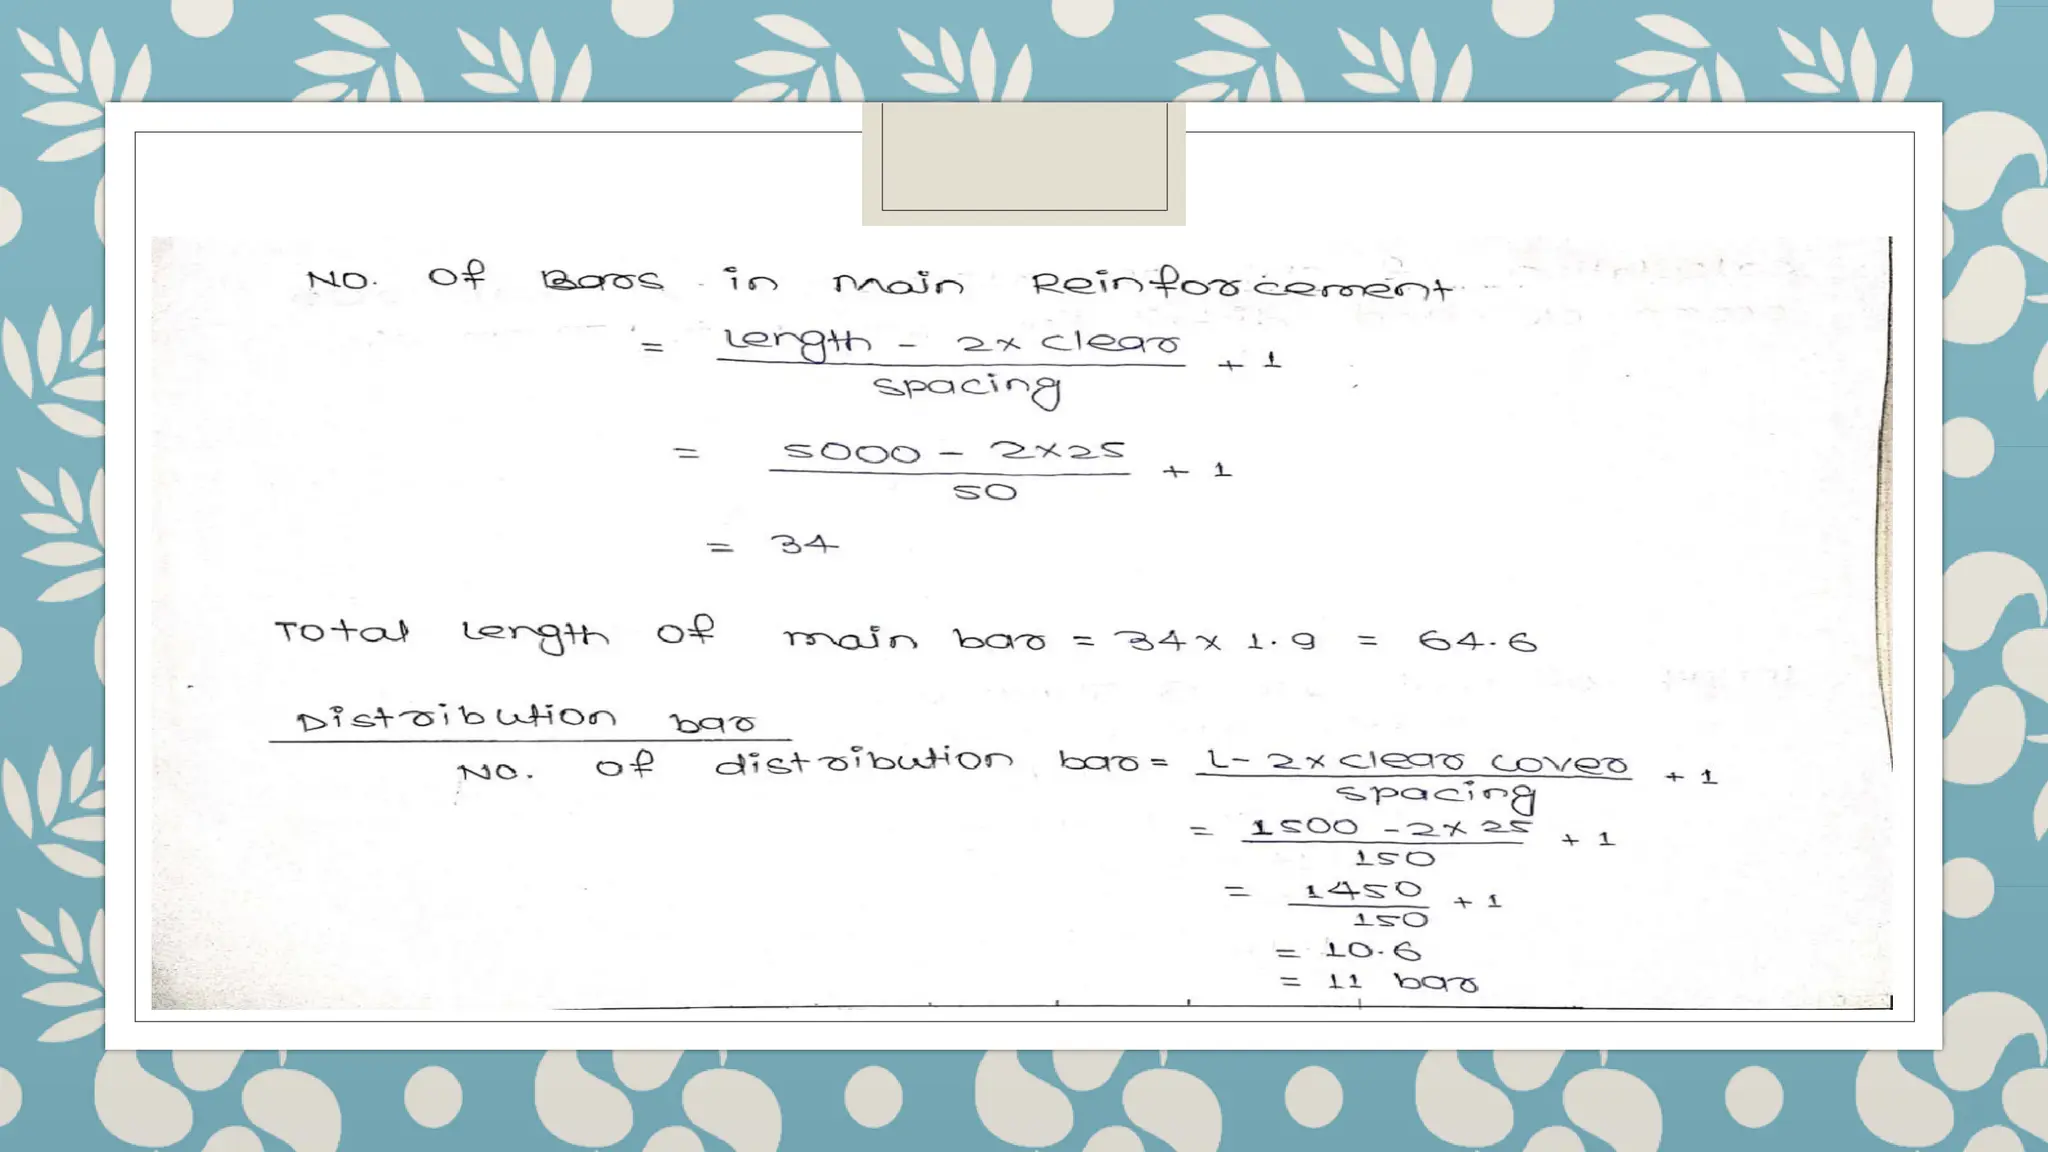 No. Of Bars in main Reinforcement
= Length - 2x clear + 1
spacing
= 5000 - 2x25 + 1
50
= 34
Total Length Of main bar = 34 x 1.9 = 64.6
Distribution bar
No. of distribution bar = L- 2x clear cover + 1
spacing
= 1500 - 2x 25 + 1
150
= 1450 + 1
150
= 10.6
= 11 bar